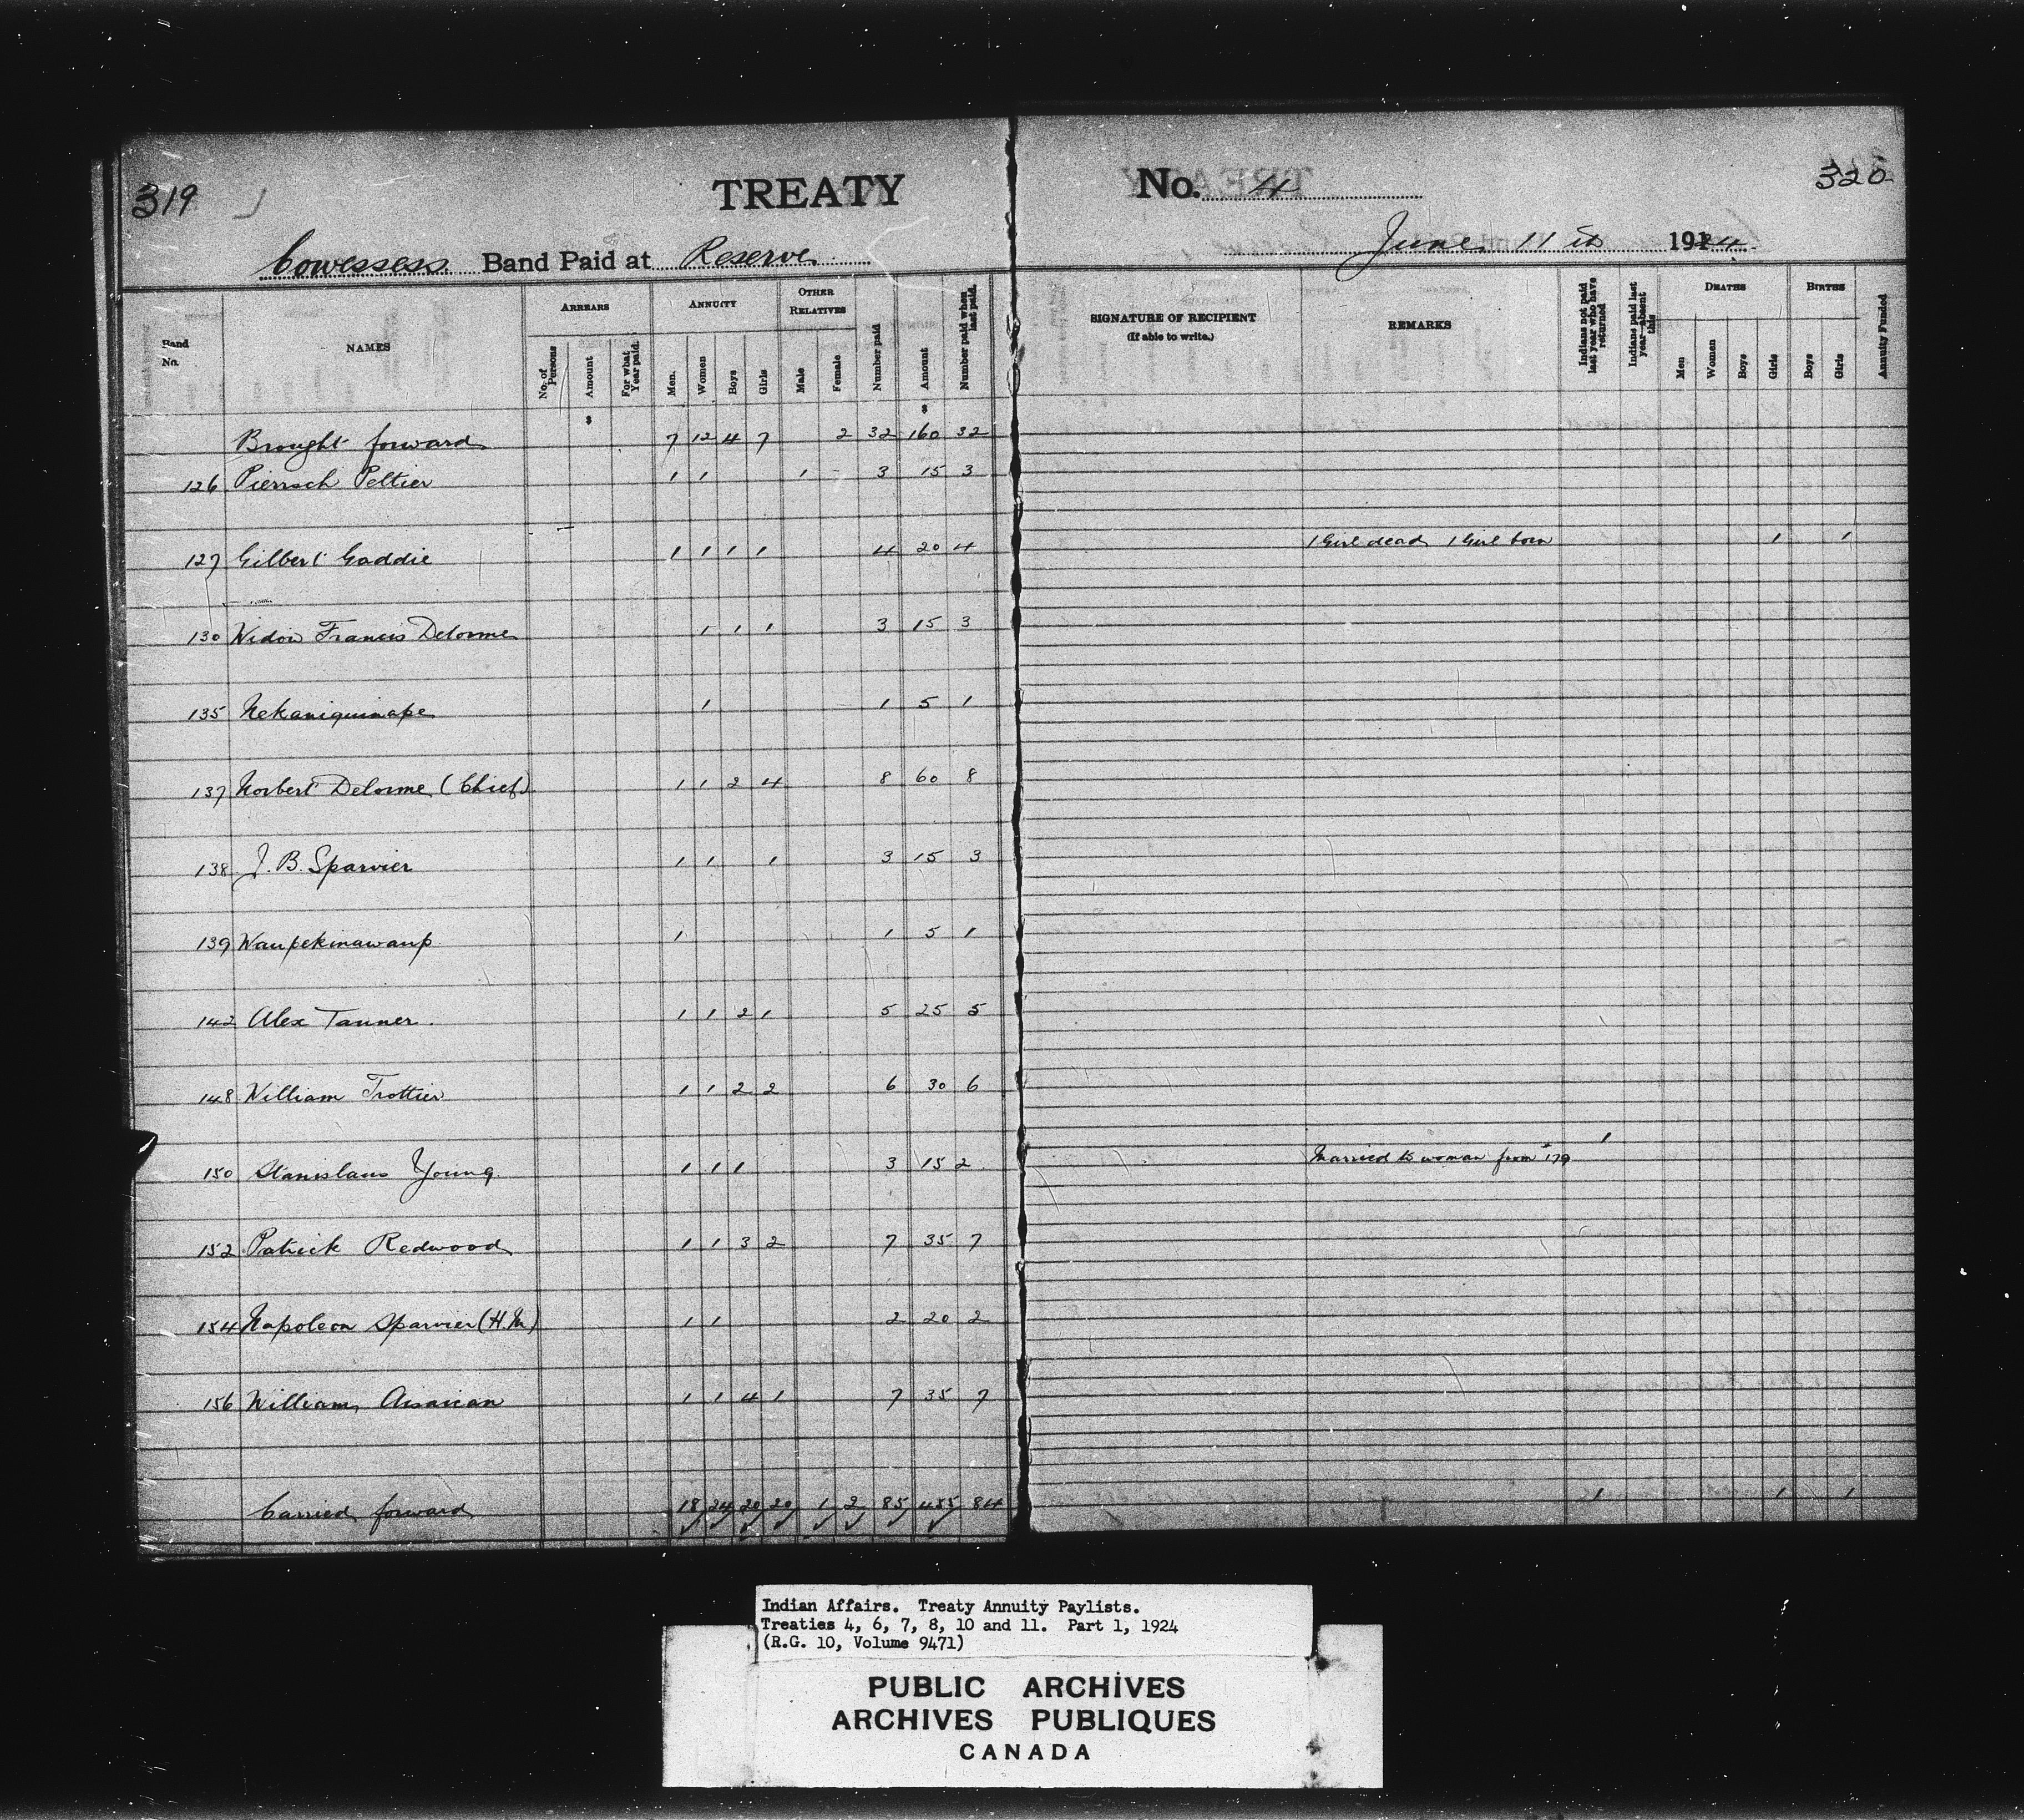 319 TREATY No. 4 320
Cowessess Band Paid at Reserve June 11th 1924
Band No. NAMES ARREARS ANNUITY OTHER RELATIVES Number paid Amount Number paid when last paid. SIGNATURE OF RECIPIENT (If able to write.) REMARKS Indians not paid last year who have returned Indians paid last year absent this DEATHS BIRTHS Annuity Funded
No. of Persons Amount For what Year paid. Men. Women Boys Girls Male Female Men Women Boys Girls Boys Girls
$ $
Brought forward 7 12 4 7 2 32 160 32
126 Pierrsch Peltier 1 1 1 3 15 3
127 Gilbert Gaddie 1 1 1 1 4 20 4 1 Girl dead 1 Girl born 1 1
130 Widow Francis Delorme 1 1 1 3 15 3
135 Nekaniquinape 1 1 5 1
137 Norbert Delorme (Chief) 1 1 2 4 8 60 8
138 J. B. Sparvier 1 1 1 3 15 3
139 Waupekinawaup 1 1 5 1
142 Alex Tanner. 1 1 2 1 5 25 5
148 William Trottier 1 1 2 2 6 30 6
150 Stanislaus Young 1 1 1 3 15 2 Married to woman from 179 1
152 Patrick Redwood 1 1 3 2 7 35 7
154 Napoleon Sparvier (H.M) 1 1 2 20 2
156 William Aisaican 1 1 4 1 7 35 7
Carried forward 18 24 20 20 1 2 85 455 84 1 1 1
Indian Affairs. Treaty Annuity Paylists.
Treaties 4, 6, 7, 8, 10 and 11. Part 1, 1924
(R.G. 10, Volume 9471)
PUBLIC ARCHIVES
ARCHIVES PUBLIQUES
CANADA